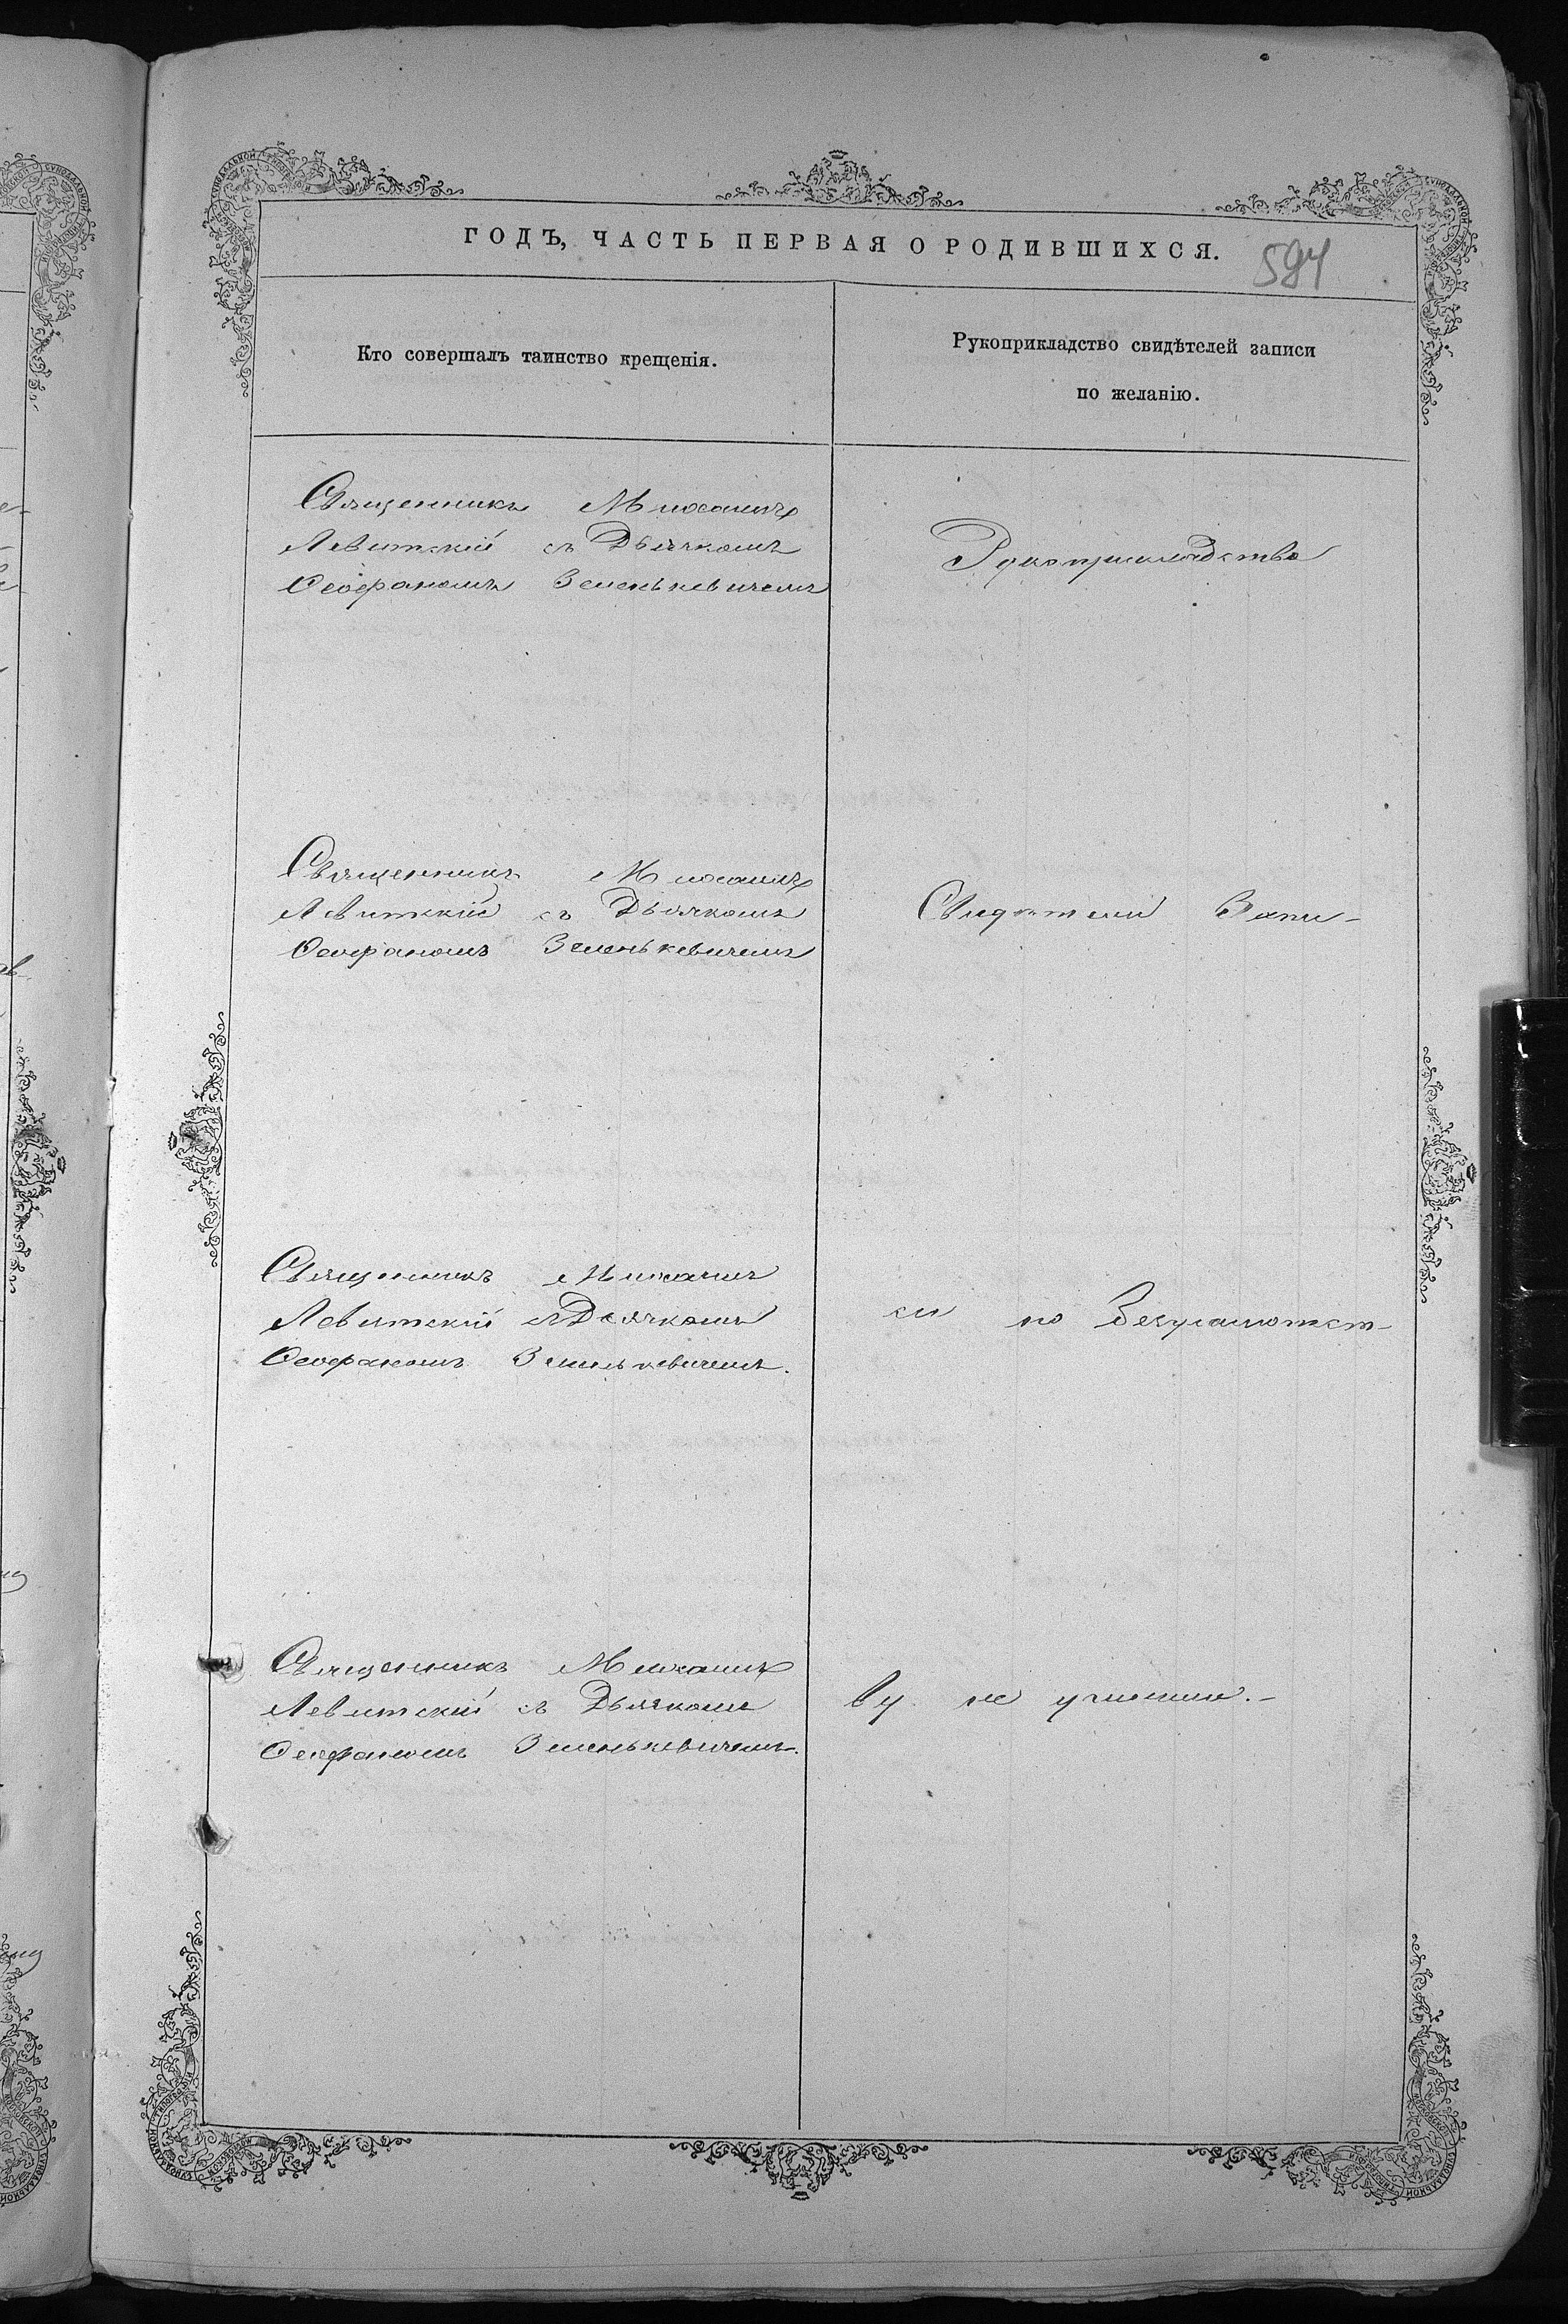 ГОДЪ, ЧАСТЬ ПЕРВАЯ О РОДИВШИХСЯ.
594
Кто совершалъ таинство крещенія.
Рукоприкладство свидѣтелей записи
по желанію.
Священникъ Михаилъ
Левитскій съ Дьячкомъ
Ѳеофаномъ Зеленькевичемъ
Рукоприкладство
Священникъ Михаилъ
Левитскій съ Дьячкомъ
Ѳеофаномъ Зеленькевичемъ
Свидѣтели Запи-
Священникъ Михаилъ
Левитскій съ Дьячкомъ
Ѳеофаномъ Зеленькевичемъ.
си по безграмотст-
Священникъ Михаилъ
Левитскій съ Дьячкомъ
Ѳеофаномъ Зеленькевичемъ.
ву не учинили.-